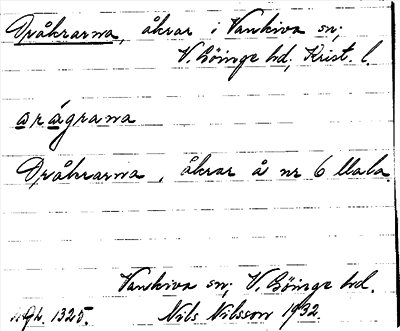 Dråkrarna, åkrar i Vankiva sn;
V. Göinge hd; Krist. l.
drågrana
Dråkrarna, åkrar å nr 6 Mala.
Vankiva sn; V. Göinge hd.
1325. Nils Nilsson 1932.